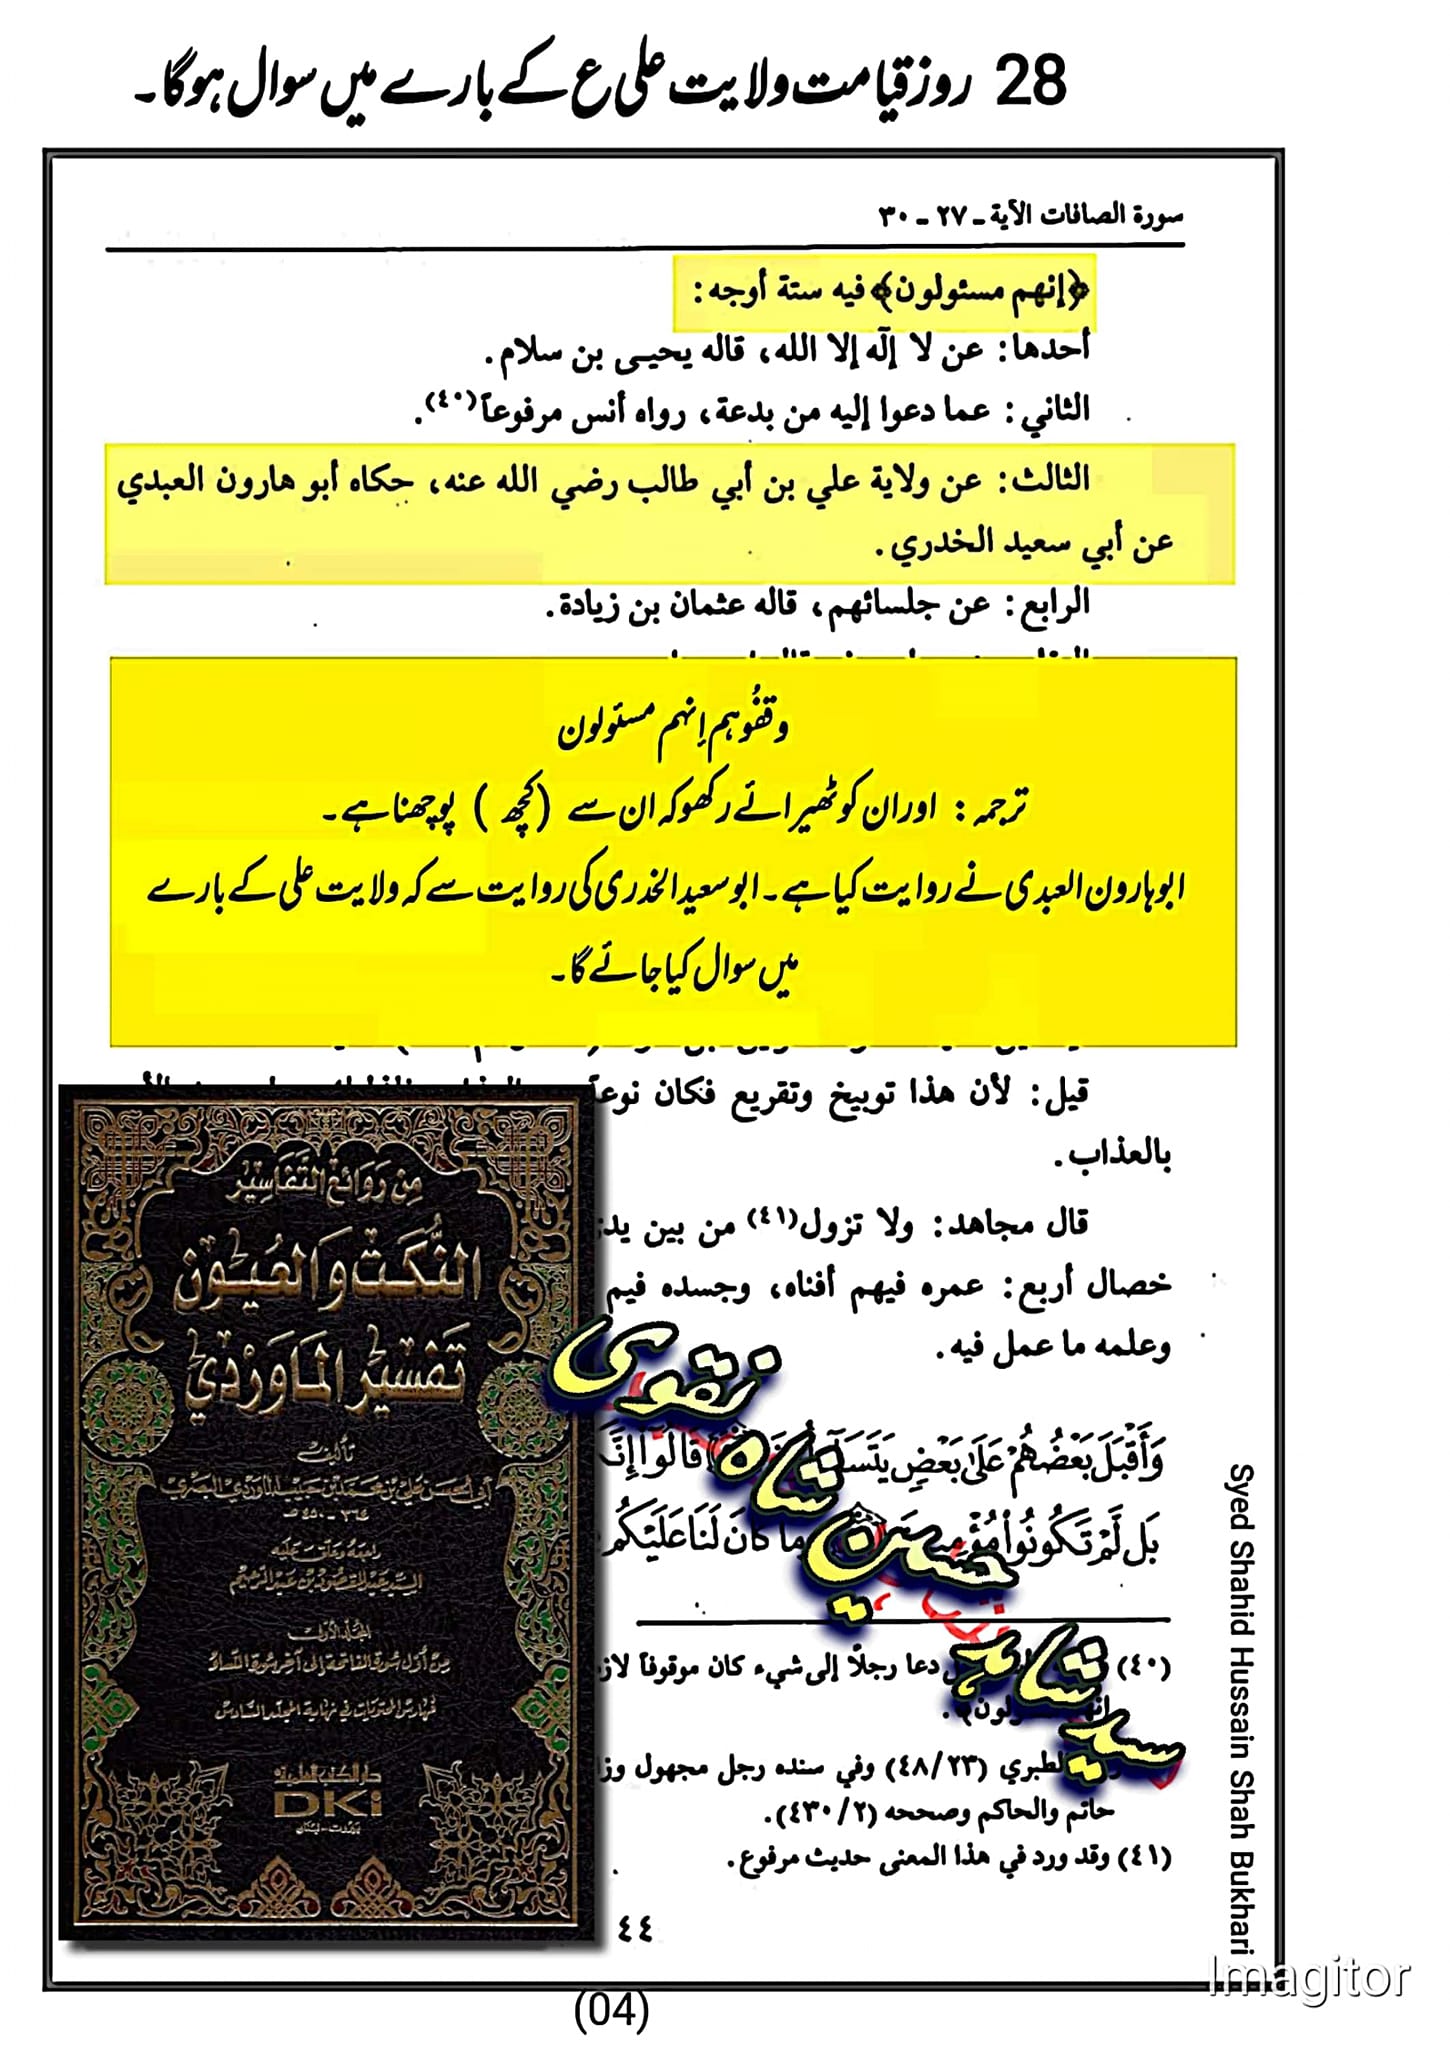 28 روز قیامت ولایت علی ع کے بارے میں سوال ہوگا۔
سورة الصافات الآية ـ ٢٧ ـ ٣٠
﴿إنهم مسئولون﴾ فيه ستة أوجه:
أحدها: عن لا إلٓه إلا الله، قاله يحيى بن سلام.
الثاني: عما دعوا إليه من بدعة، رواه أنس مرفوعاً(٤٠).
الثالث: عن ولاية علي بن أبي طالب رضي الله عنه، حكاه أبو هارون العبدي
عن أبي سعيد الخدري.
الرابع: عن جلسائهم، قاله عثمان بن زيادة.
وقفُوہم إنہم مسئولون
ترجمہ: اور ان کو ٹھیرائے رکھو کہ ان سے (کچھ) پوچھنا ہے۔
ابوہارون العبدی نے روایت کیا ہے۔ ابوسعید الخدری کی روایت سے کہ ولایت علی کے بارے
میں سوال کیا جائے گا۔
قيل: لأن هذا توبيخ وتقريع فكان نوعاً
بالعذاب.
قال مجاهد: ولا تزول(٤١) من بين
خصال أربع: عمره فيهم أفناه، وجسده فيم
وعلمه ما عمل فيه.
وَأَقْبَلَ بَعْضُهُمْ عَلَىٰ بَعْضٍ قَالُوٓا۟
بَل لَّمْ تَكُونُوا۟ وَمَا كَانَ لَنَا عَلَيْكُم
(٤٠) دعا رجلاً إلى شيء كان موقوفاً
الطبري (٤٨/٢٣) وفي سنده رجل مجهول
حاتم والحاكم وصححه (٤٣٠/٢).
(٤١) وقد ورد في هذا المعنى حديث مرفوع.
٤٤
مِن رَوَائع التَّفَاسِير
النُّكَتُ وَالعُيُون
تَفسِيرُ المَاوَردِي
تأليف
أبي الحسن علي بن محمد بن حبيب الماوردي البصري
٣٦٤ - ٤٥٠ هـ
راجعه وعلق عليه
السيد عبد المقصود بن عبد الرحيم
المجلد الأول
من أول سورة الفاتحة إلى آخر سورة النساء
فهارس المحتويات في نهاية المجلد السادس
دار الكتب العلمية
DKi
بيروت - لبنان
سید شاہد حسین شاہ نقوی
Syed Shahid Hussain Shah Bukhari
Imagitor
(04)